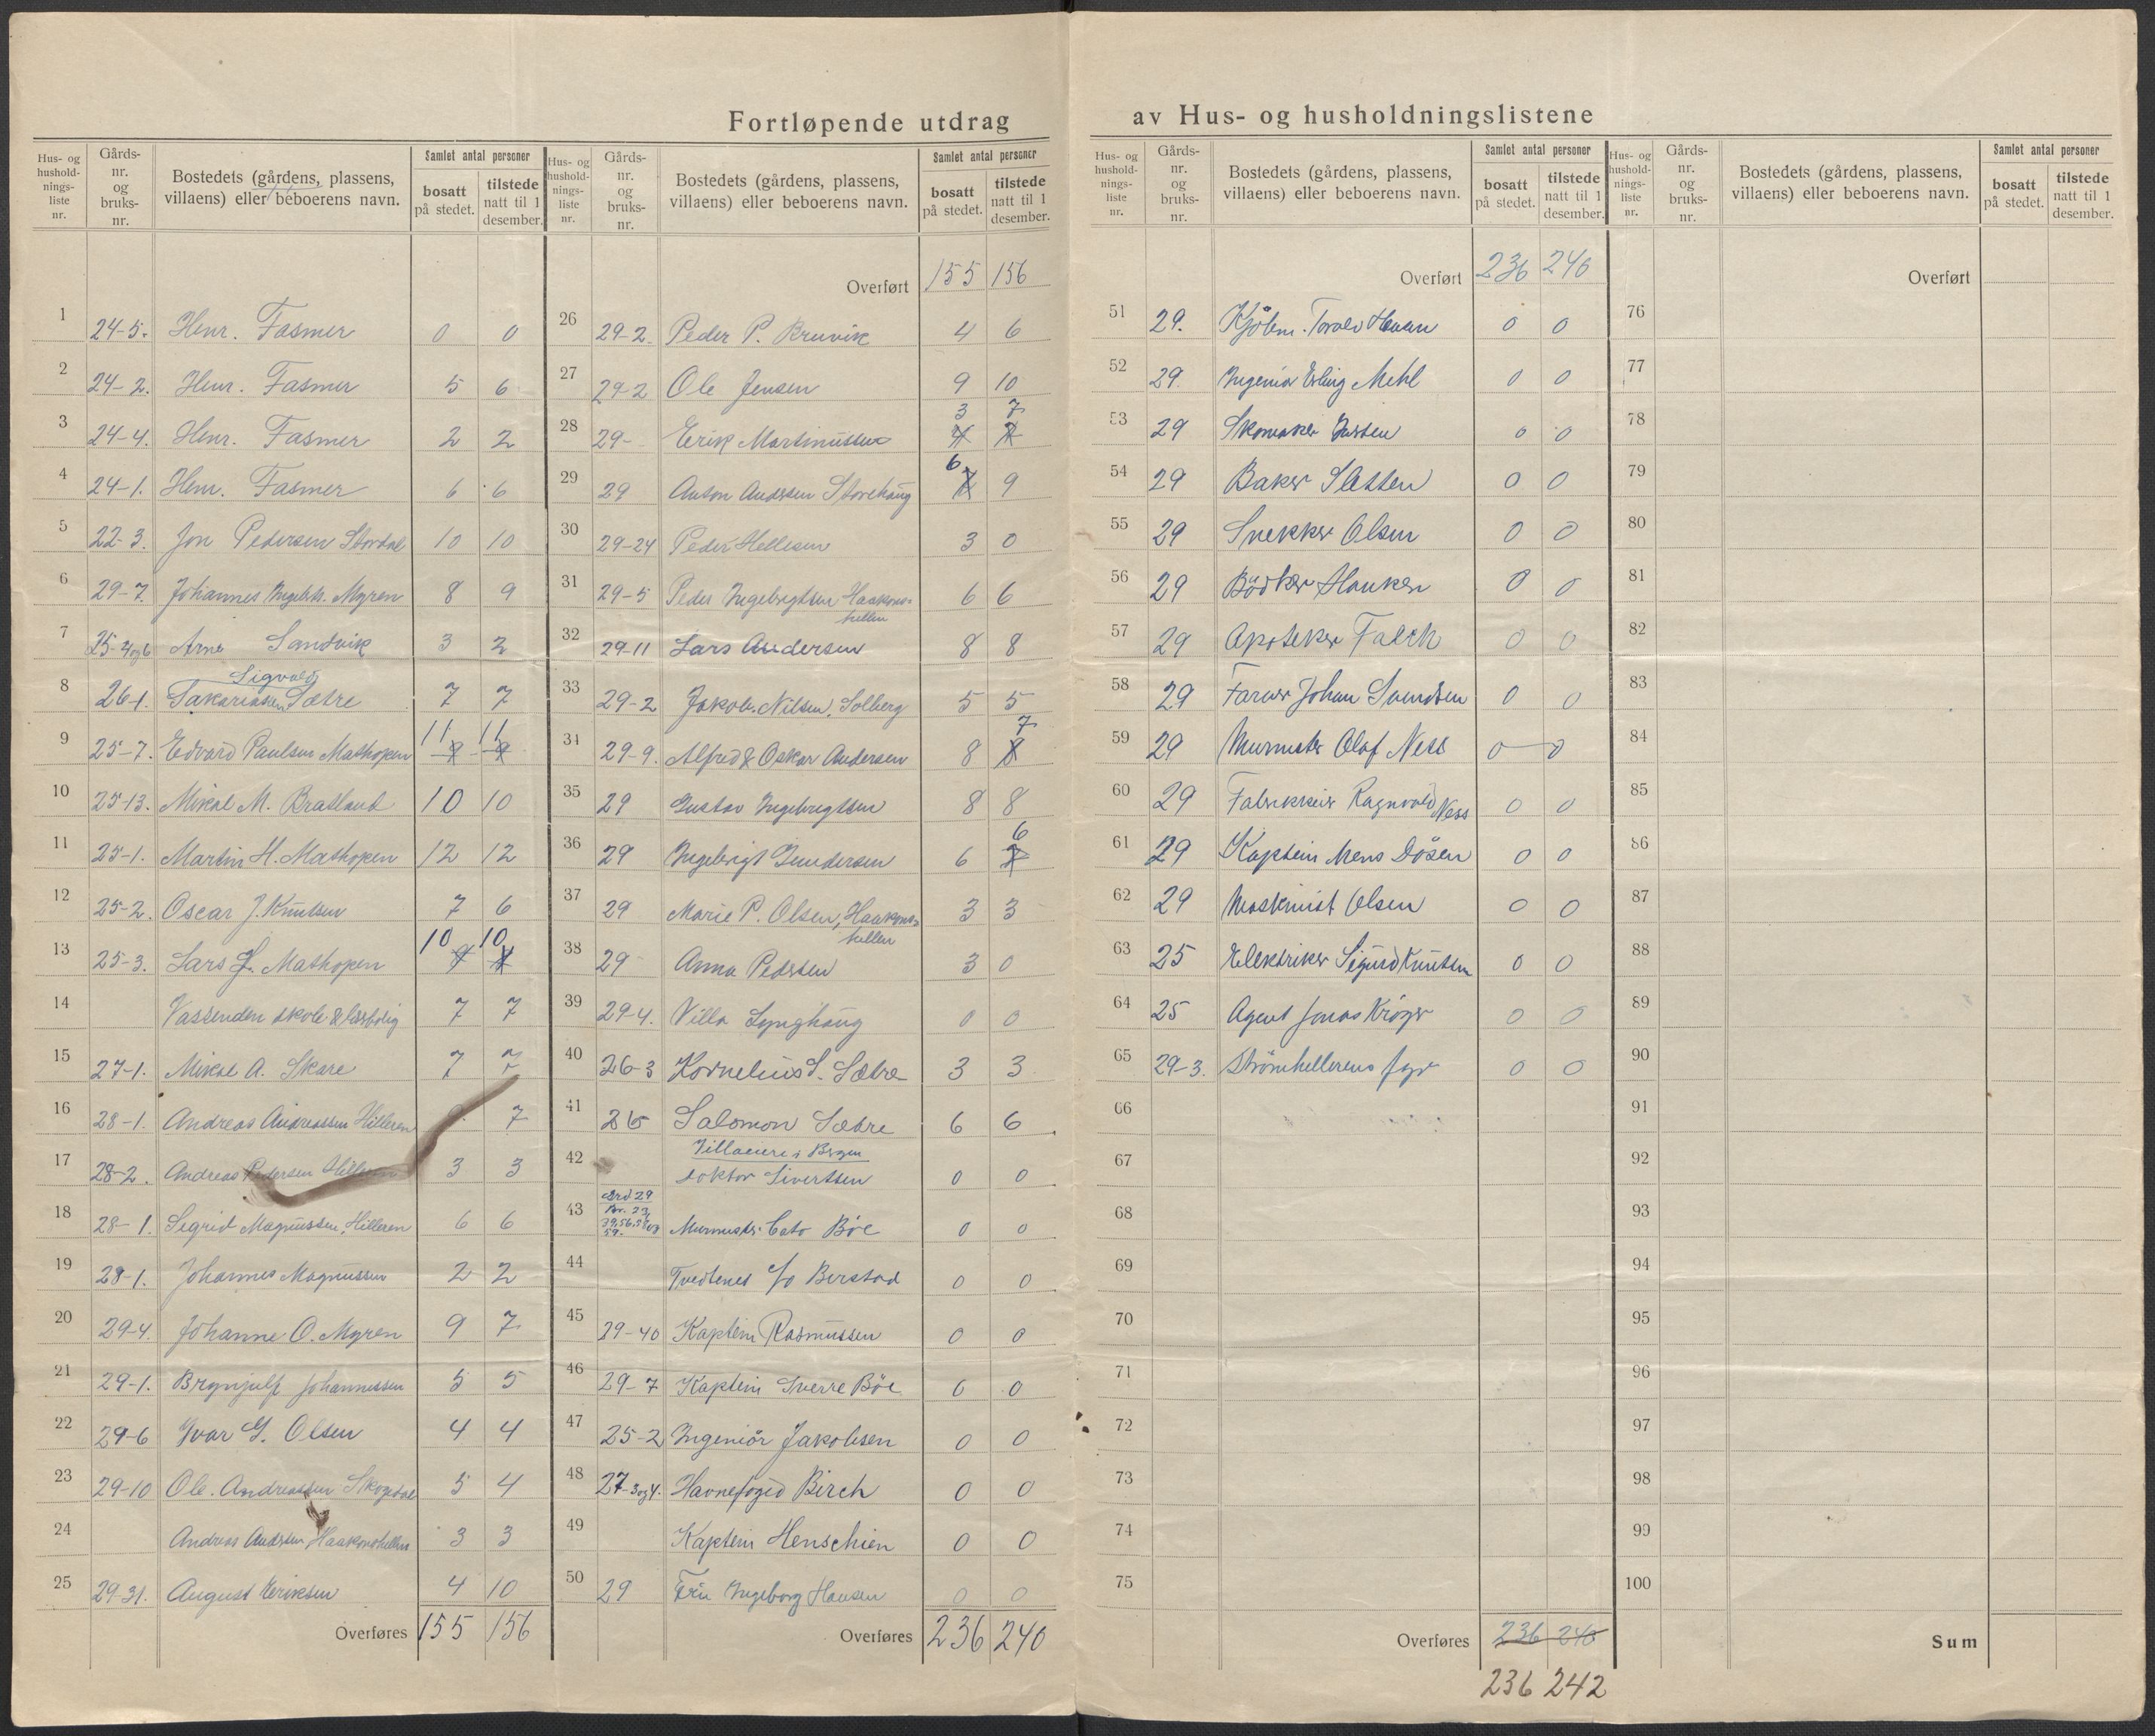 Fortløpende utdrag av Hus- og husholdningslistene
Hus- og hushold-nings-liste nr. Gårds-nr. og bruks-nr. Bostedets (gårdens, plassens, villaens) eller beboerens navn. Samlet antal personer bosatt på stedet. tilstede natt til 1 desember.
1 24-5. Henr. Fasmer 0 0
2 24-2. Henr. Fasmer 5 6
3 24-4. Henr. Fasmer 2 2
4 24-1. Henr. Fasmer 6 6
5 22-3. Jon Pedersen Stordal 10 10
6 29-7. Johannes Ingebr. Myren 8 9
7 25-4og6 Arne Sandvik 3 2
8 26-1. Sakariassen Sigvald Sætre 7 7
9 25-7. Edvard Paulsen Mathopen 11 11
10 25-13. Mikal M. Bratland 10 10
11 25-1. Martin H. Mathopen 12 12
12 25-2. Oscar J. Knutsen 7 6
13 25-3. Lars J. Mathopen 10 10
14 Vassenden skole & lærbolig 7 7
15 27-1. Mikal A. Skare 7 7
16 28-1. Andreas Andreassen Hilleren 7
17 28-2. Andreas Pedersen Hilleren 3 3
18 28-1. Sigrid Magnussen, Hilleren 6 6
19 28-1. Johannes Magnussen 2 2
20 29-4. Johanne O. Myren 9 7
21 29-1. Brynjulf Johannessen 5 5
22 29-6 Ivar G. Olsen 4 4
23 29-10 Ole Andreassen Skogedal 5 4
24 Andreas Andersen, Haakonshellen 3 3
25 29-31. August Eriksen 4 10
Overføres 155 156
Hus- og hushold-nings-liste nr. Gårds-nr. og bruks-nr. Bostedets (gårdens, plassens, villaens) eller beboerens navn. Samlet antal personer bosatt på stedet. tilstede natt til 1 desember.
Overført 155 156
26 29-2. Peder P. Bruvik 4 6
27 29-2 Ole Jensen 9 10
28 29- Erik Martinussen 3 7
29 29 Anton Andersen Storehaug 6 9
30 29-24 Peder Hellesen 3 0
31 29-5 Peder Ingebrigtsen Haakonshellen 6 6
32 29-11 Lars Andersen 8 8
33 29-2 Jakob Nilsen, Solberg 5 5
34 29-9. Alfred & Oskar Andersen 8 7
35 29 Gustav Ingebrigtsen 8 8
36 29 Ingebrigt Gundersen 6 6
37 29 Marie P. Olsen, Haakonshellen 3 3
38 29 Anna Pedersen 3 0
39 29-4. Villa Lynghaug 0 0
40 26-3 Kornelius S. Sætre 3 3
41 26 Salomon Sætre 6 6
Villaeiere i Bergen
42 Doktor Sivertsen 0 0
43 Murmester Cato Böe 0 0
44 Tvedtenes c/o Berstad 0 0
45 29-40 Kaptein Rasmussen 0 0
46 29-7 Kaptein Sverre Böe 0 0
47 25-2 Ingeniör Jakobsen 0 0
48 27-3og4. Havnefoged Birch 0 0
49 Kaptein Henschien 0 0
50 29 Fru Ingeborg Hansen 0 0
Overføres 236 240
Hus- og hushold-nings-liste nr. Gårds-nr. og bruks-nr. Bostedets (gårdens, plassens, villaens) eller beboerens navn. Samlet antal personer bosatt på stedet. tilstede natt til 1 desember.
Overført 236 240
51 29. Kjöbm. Torolv 0 0
52 29. Ingeniör Erling Mehl 0 0
53 29 Skomaker 0 0
54 29 Baker Sletten 0 0
55 29 Snekker Olsen 0 0
56 29 Bödker Hauken 0 0
57 29 Apoteker Falch 0 0
58 29 Farver Johan Svendsen 0 0
59 29 Murmester Olaf Ness 0 0
60 29 Fabrikkeier Ragnvald Ness 0 0
61 29 Kaptein Mens Dösen 0 0
62 29 Maskinist Olsen 0 0
63 25 Elektriker Sigurd Knutsen 0 0
64 25 Agent Jonas Kröger 0 0
65 29-3. Strömhellerens fyr 0 0
66
67
68
69
70
71
72
73
74
75
Overføres 236 240
236 242
Hus- og hushold-nings-liste nr. Gårds-nr. og bruks-nr. Bostedets (gårdens, plassens, villaens) eller beboerens navn. Samlet antal personer bosatt på stedet. tilstede natt til 1 desember.
Overført
76
77
78
79
80
81
82
83
84
85
86
87
88
89
90
91
92
93
94
95
96
97
98
99
100
Sum